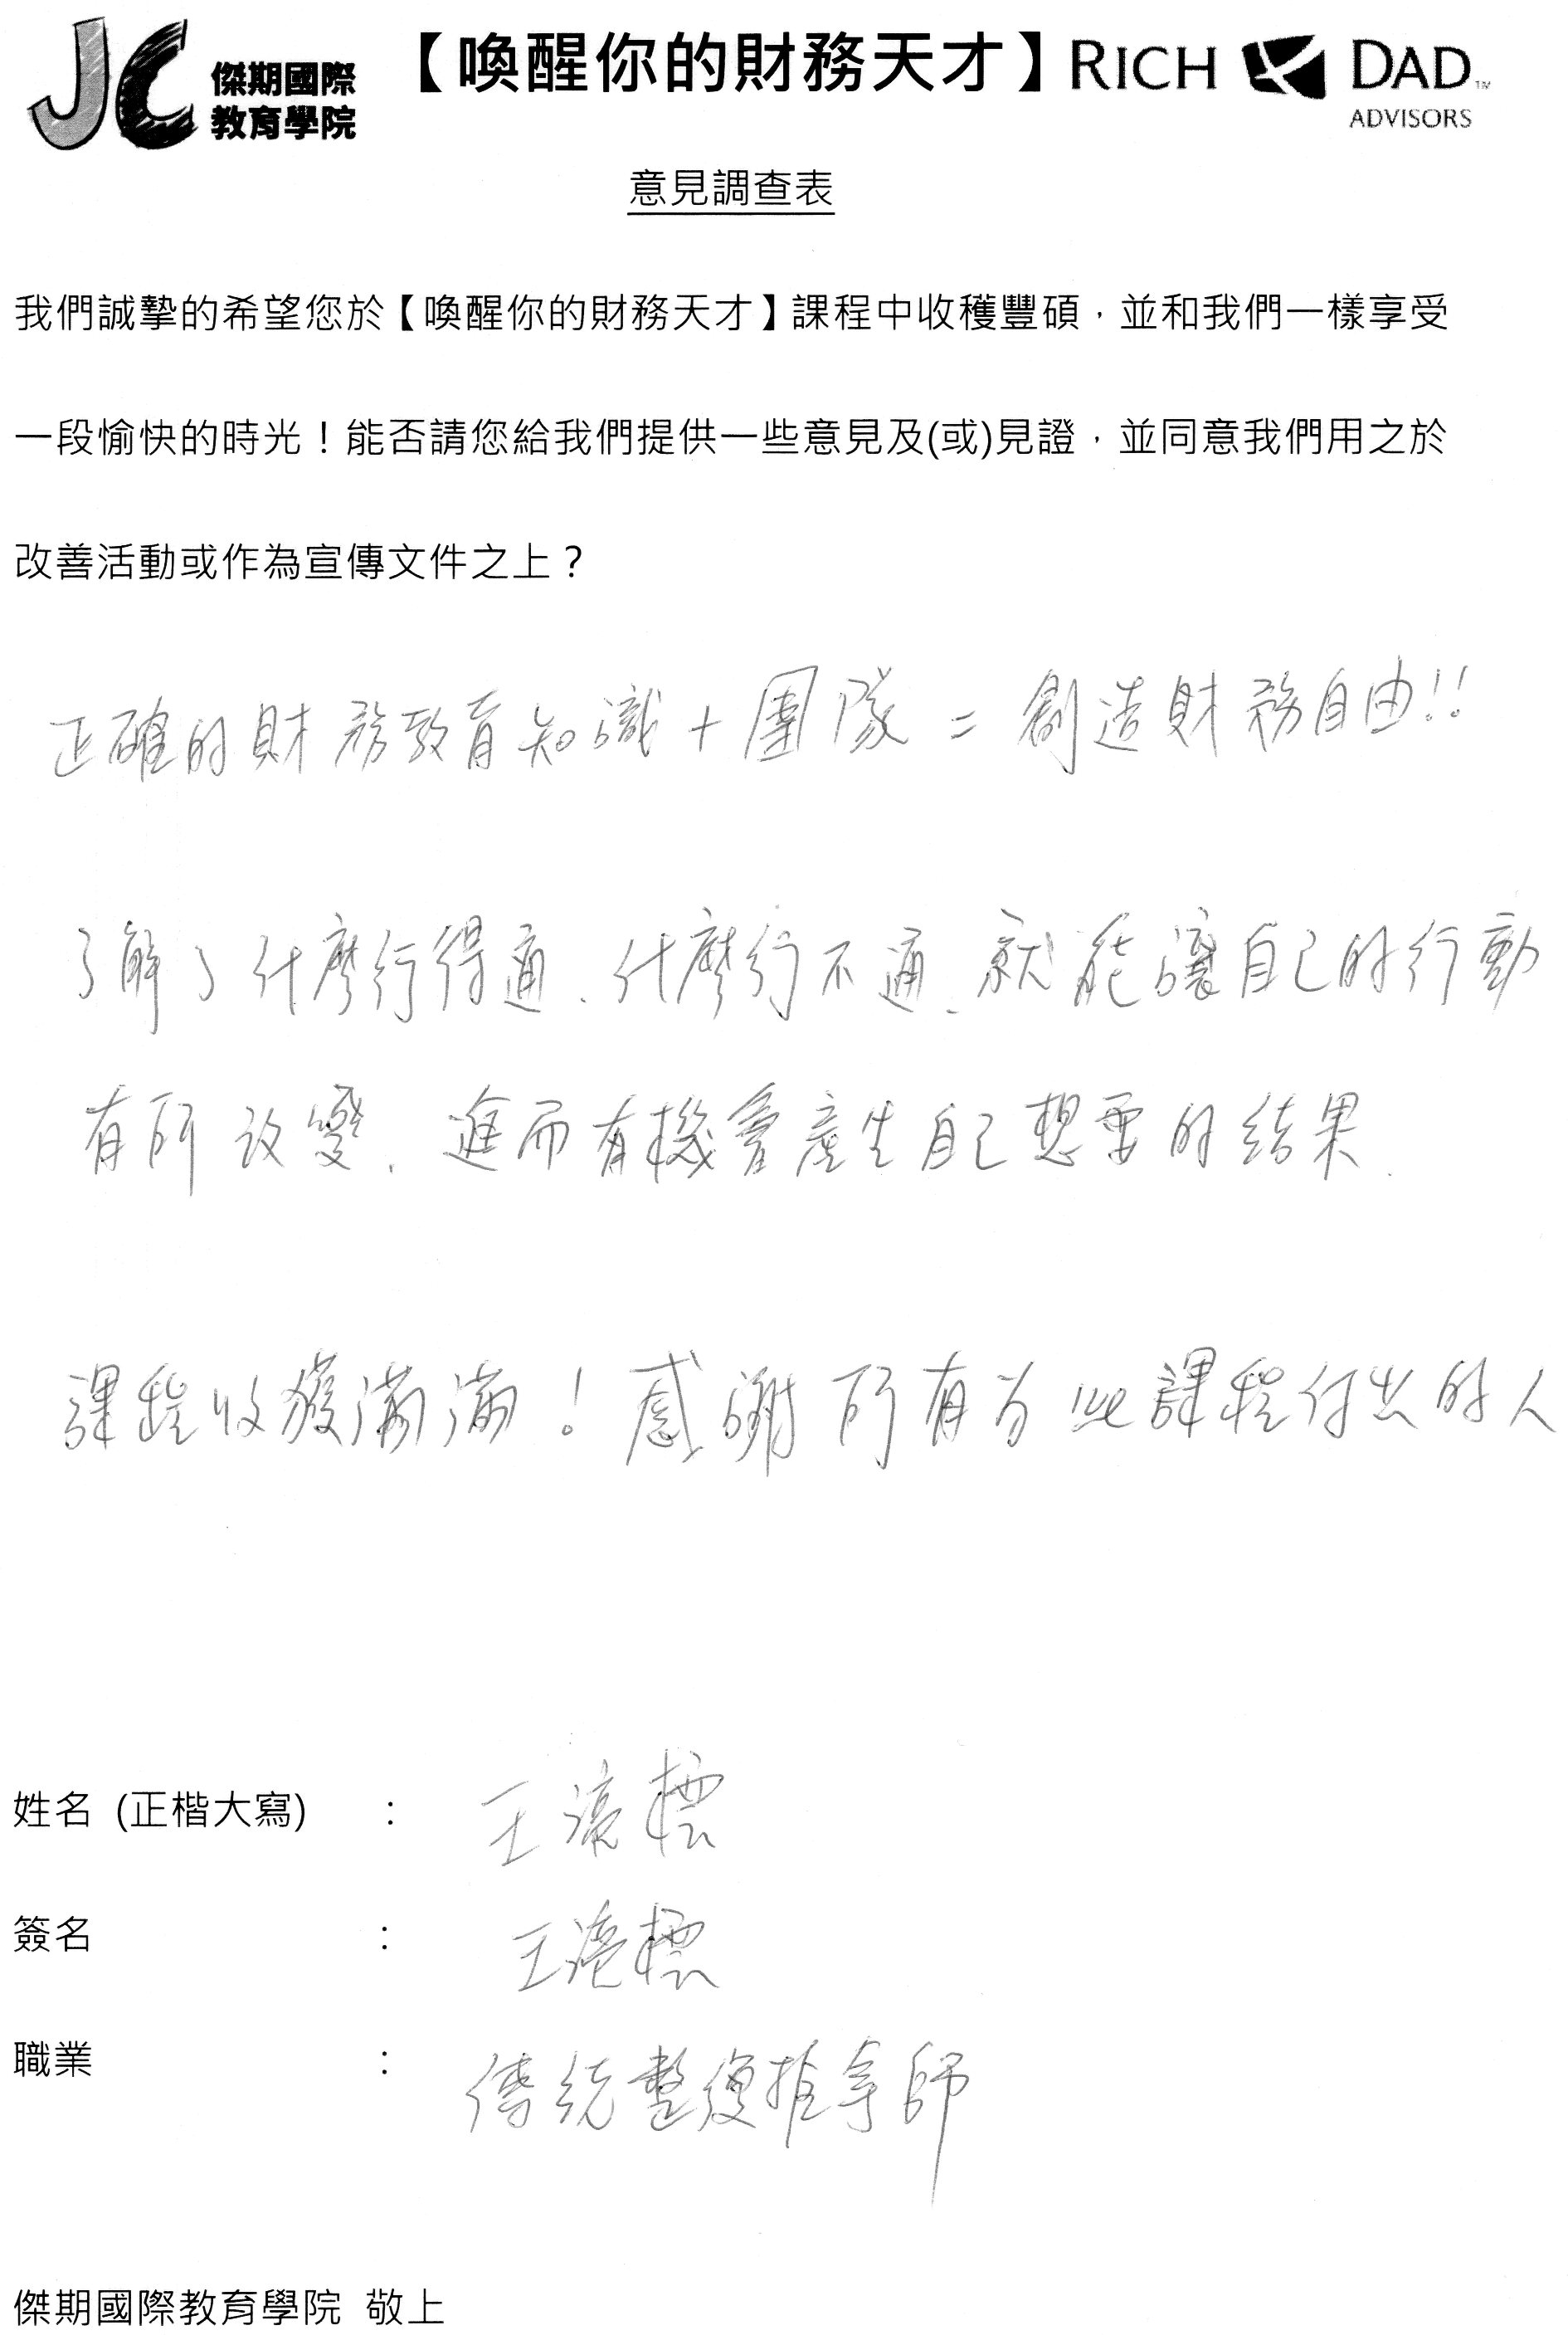 JC 傑期國際
教育學院
【喚醒你的財務天才】
RICH DAD™
ADVISORS
意見調查表
我們誠摯的希望您於【喚醒你的財務天才】課程中收穫豐碩，並和我們一樣享受
一段愉快的時光！能否請您給我們提供一些意見及(或)見證，並同意我們用之於
改善活動或作為宣傳文件之上？
正確的財務教育知識+團隊=創造財務自由!!
了解了什麼行得通、什麼行不通、就能讓自己的行動
有所改變、進而有機會產生自己想要的結果.
課程收獲滿滿！感謝所有為此課程付出的人
姓名 (正楷大寫) ： 王 標
簽名 ： 王 標
職業 ： 傳統整復推拿師
傑期國際教育學院 敬上